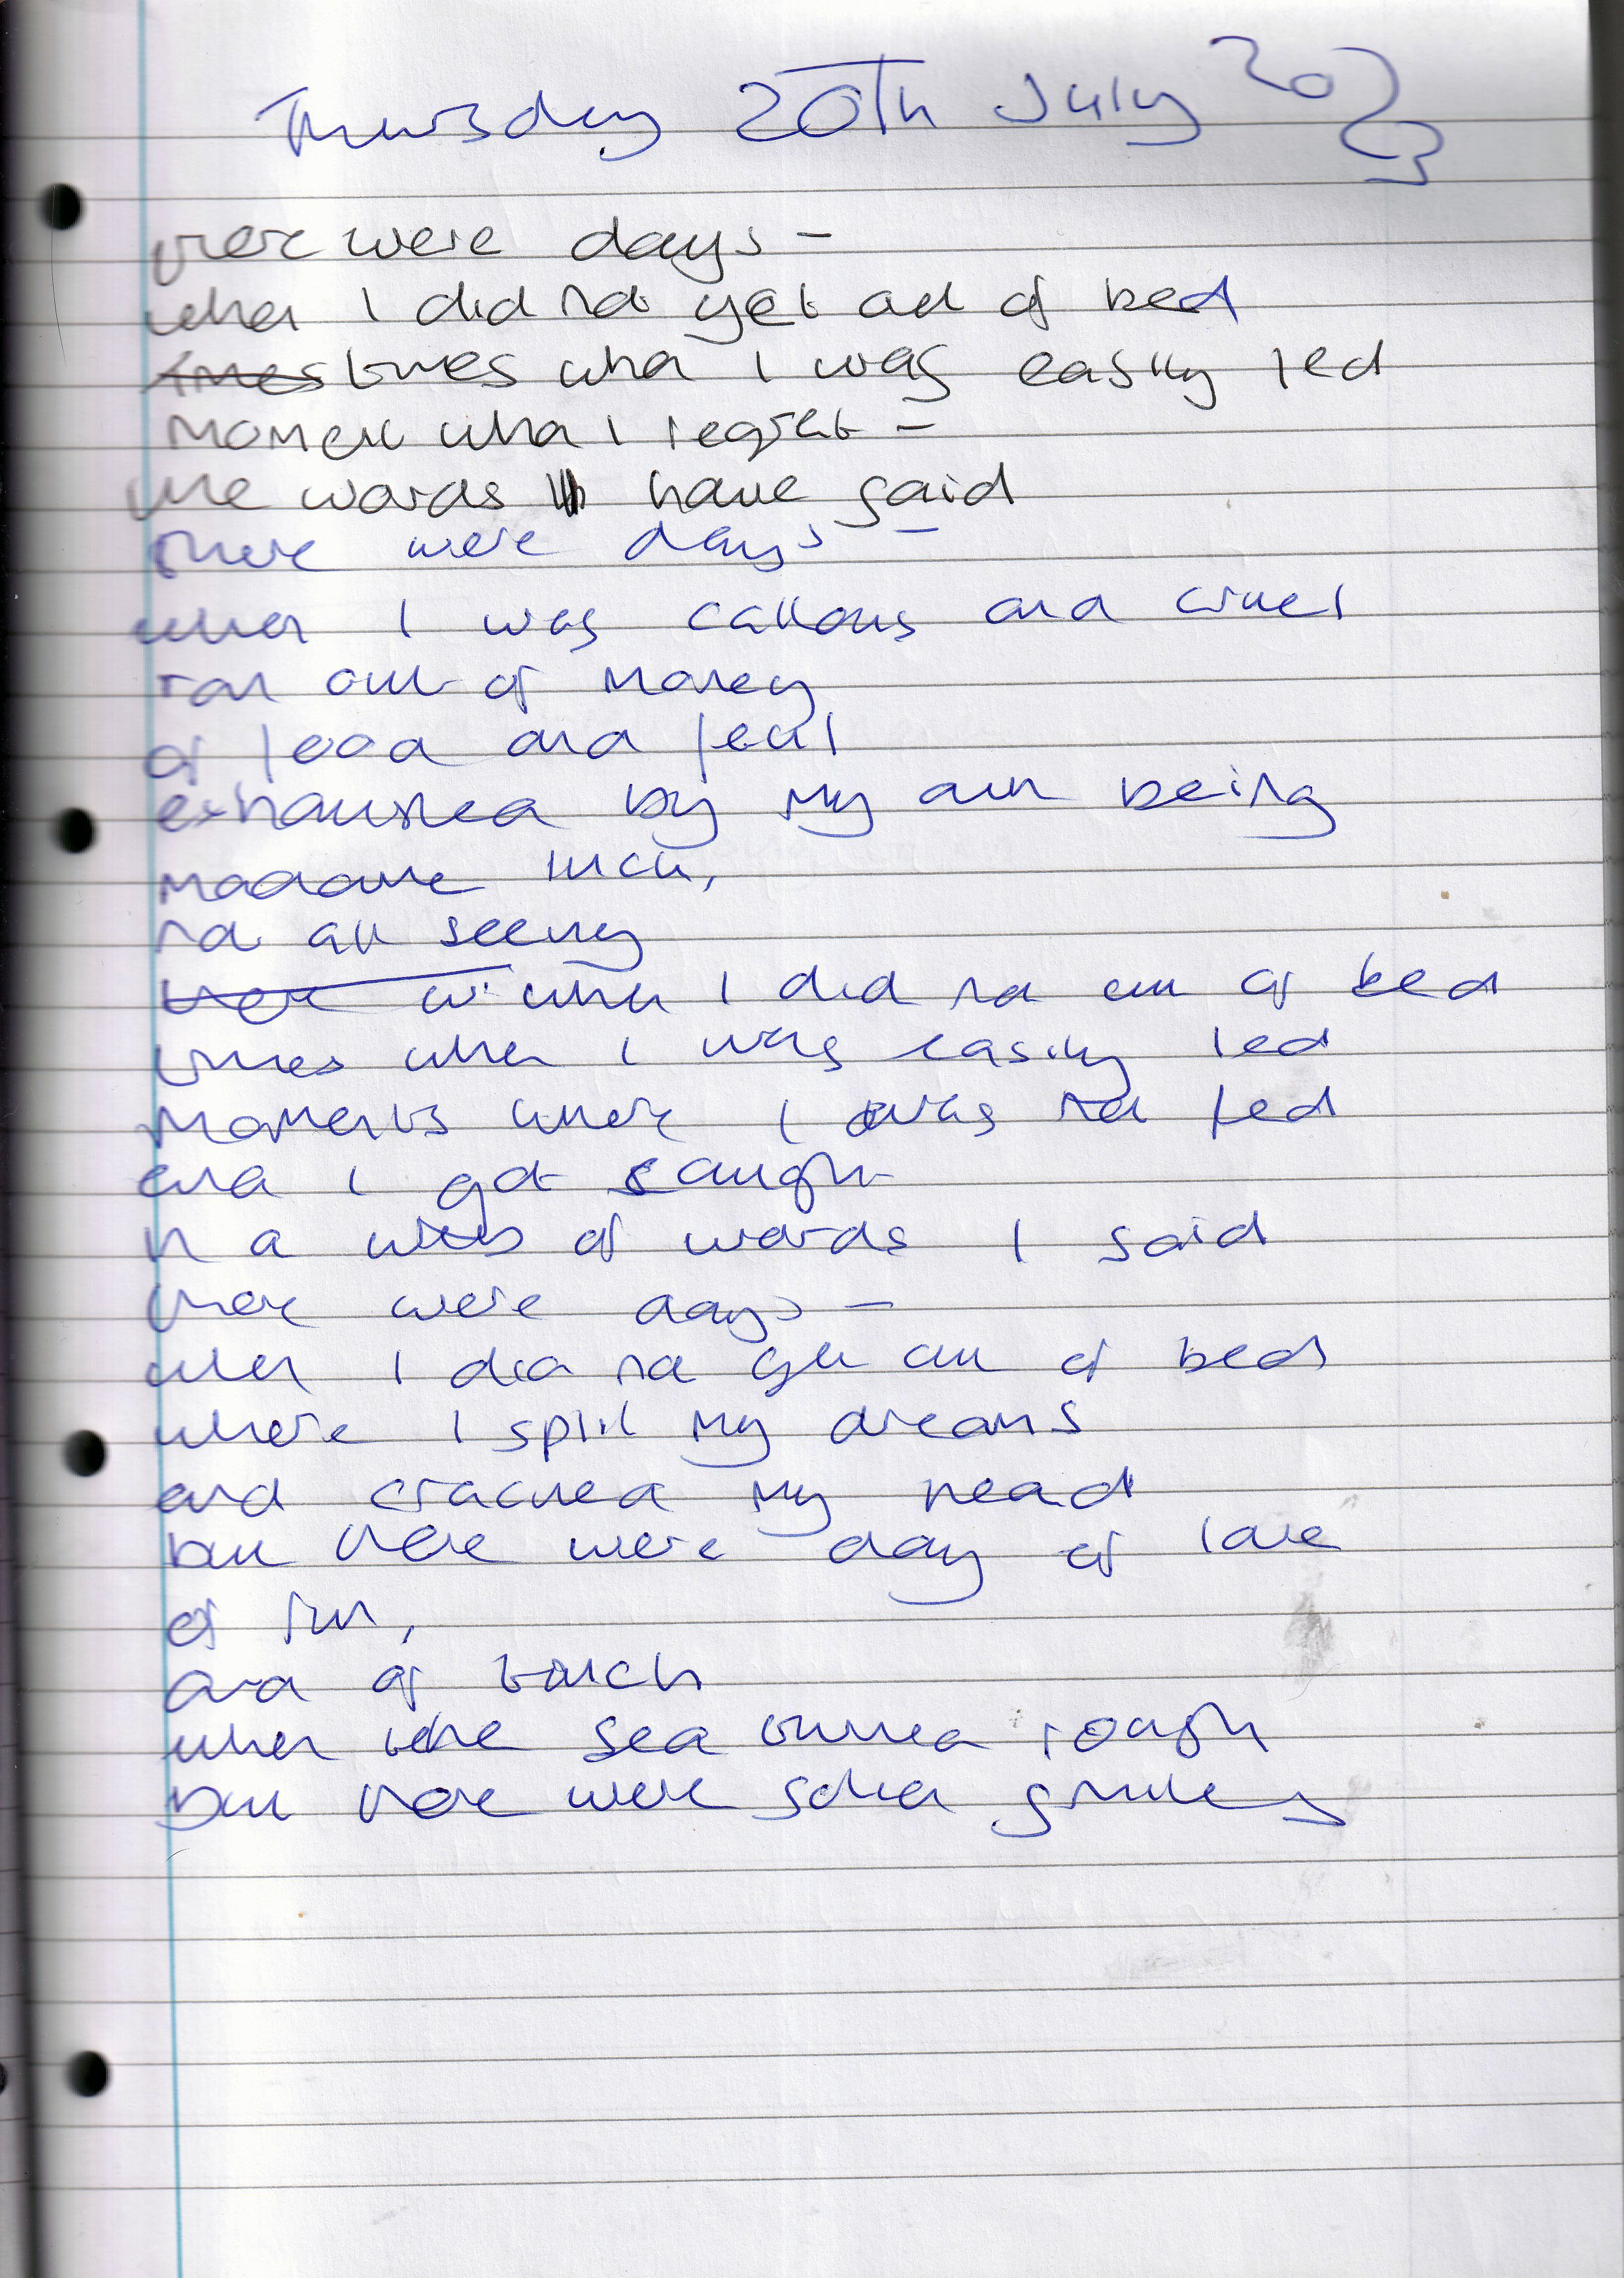 Thursday 20th July 2023
there were days –
when I did not get out of bed
times times when I was easily led
moment when I regret –
the words I have said
there were days –
when I was callous and cruel
ran out of money
of food and fuel
exhausted by my own being
madame luck,
not all seeing
there w when I did not out of bed
times when I was easily led
moments where I was not fed
and I got caught
in a web of words I said
there were days –
when I did not get out of bed
where I spilt my dreams
and cracked my head
but there were day of love
of fun,
and of touch
when the sea turned rough
but there were smiles